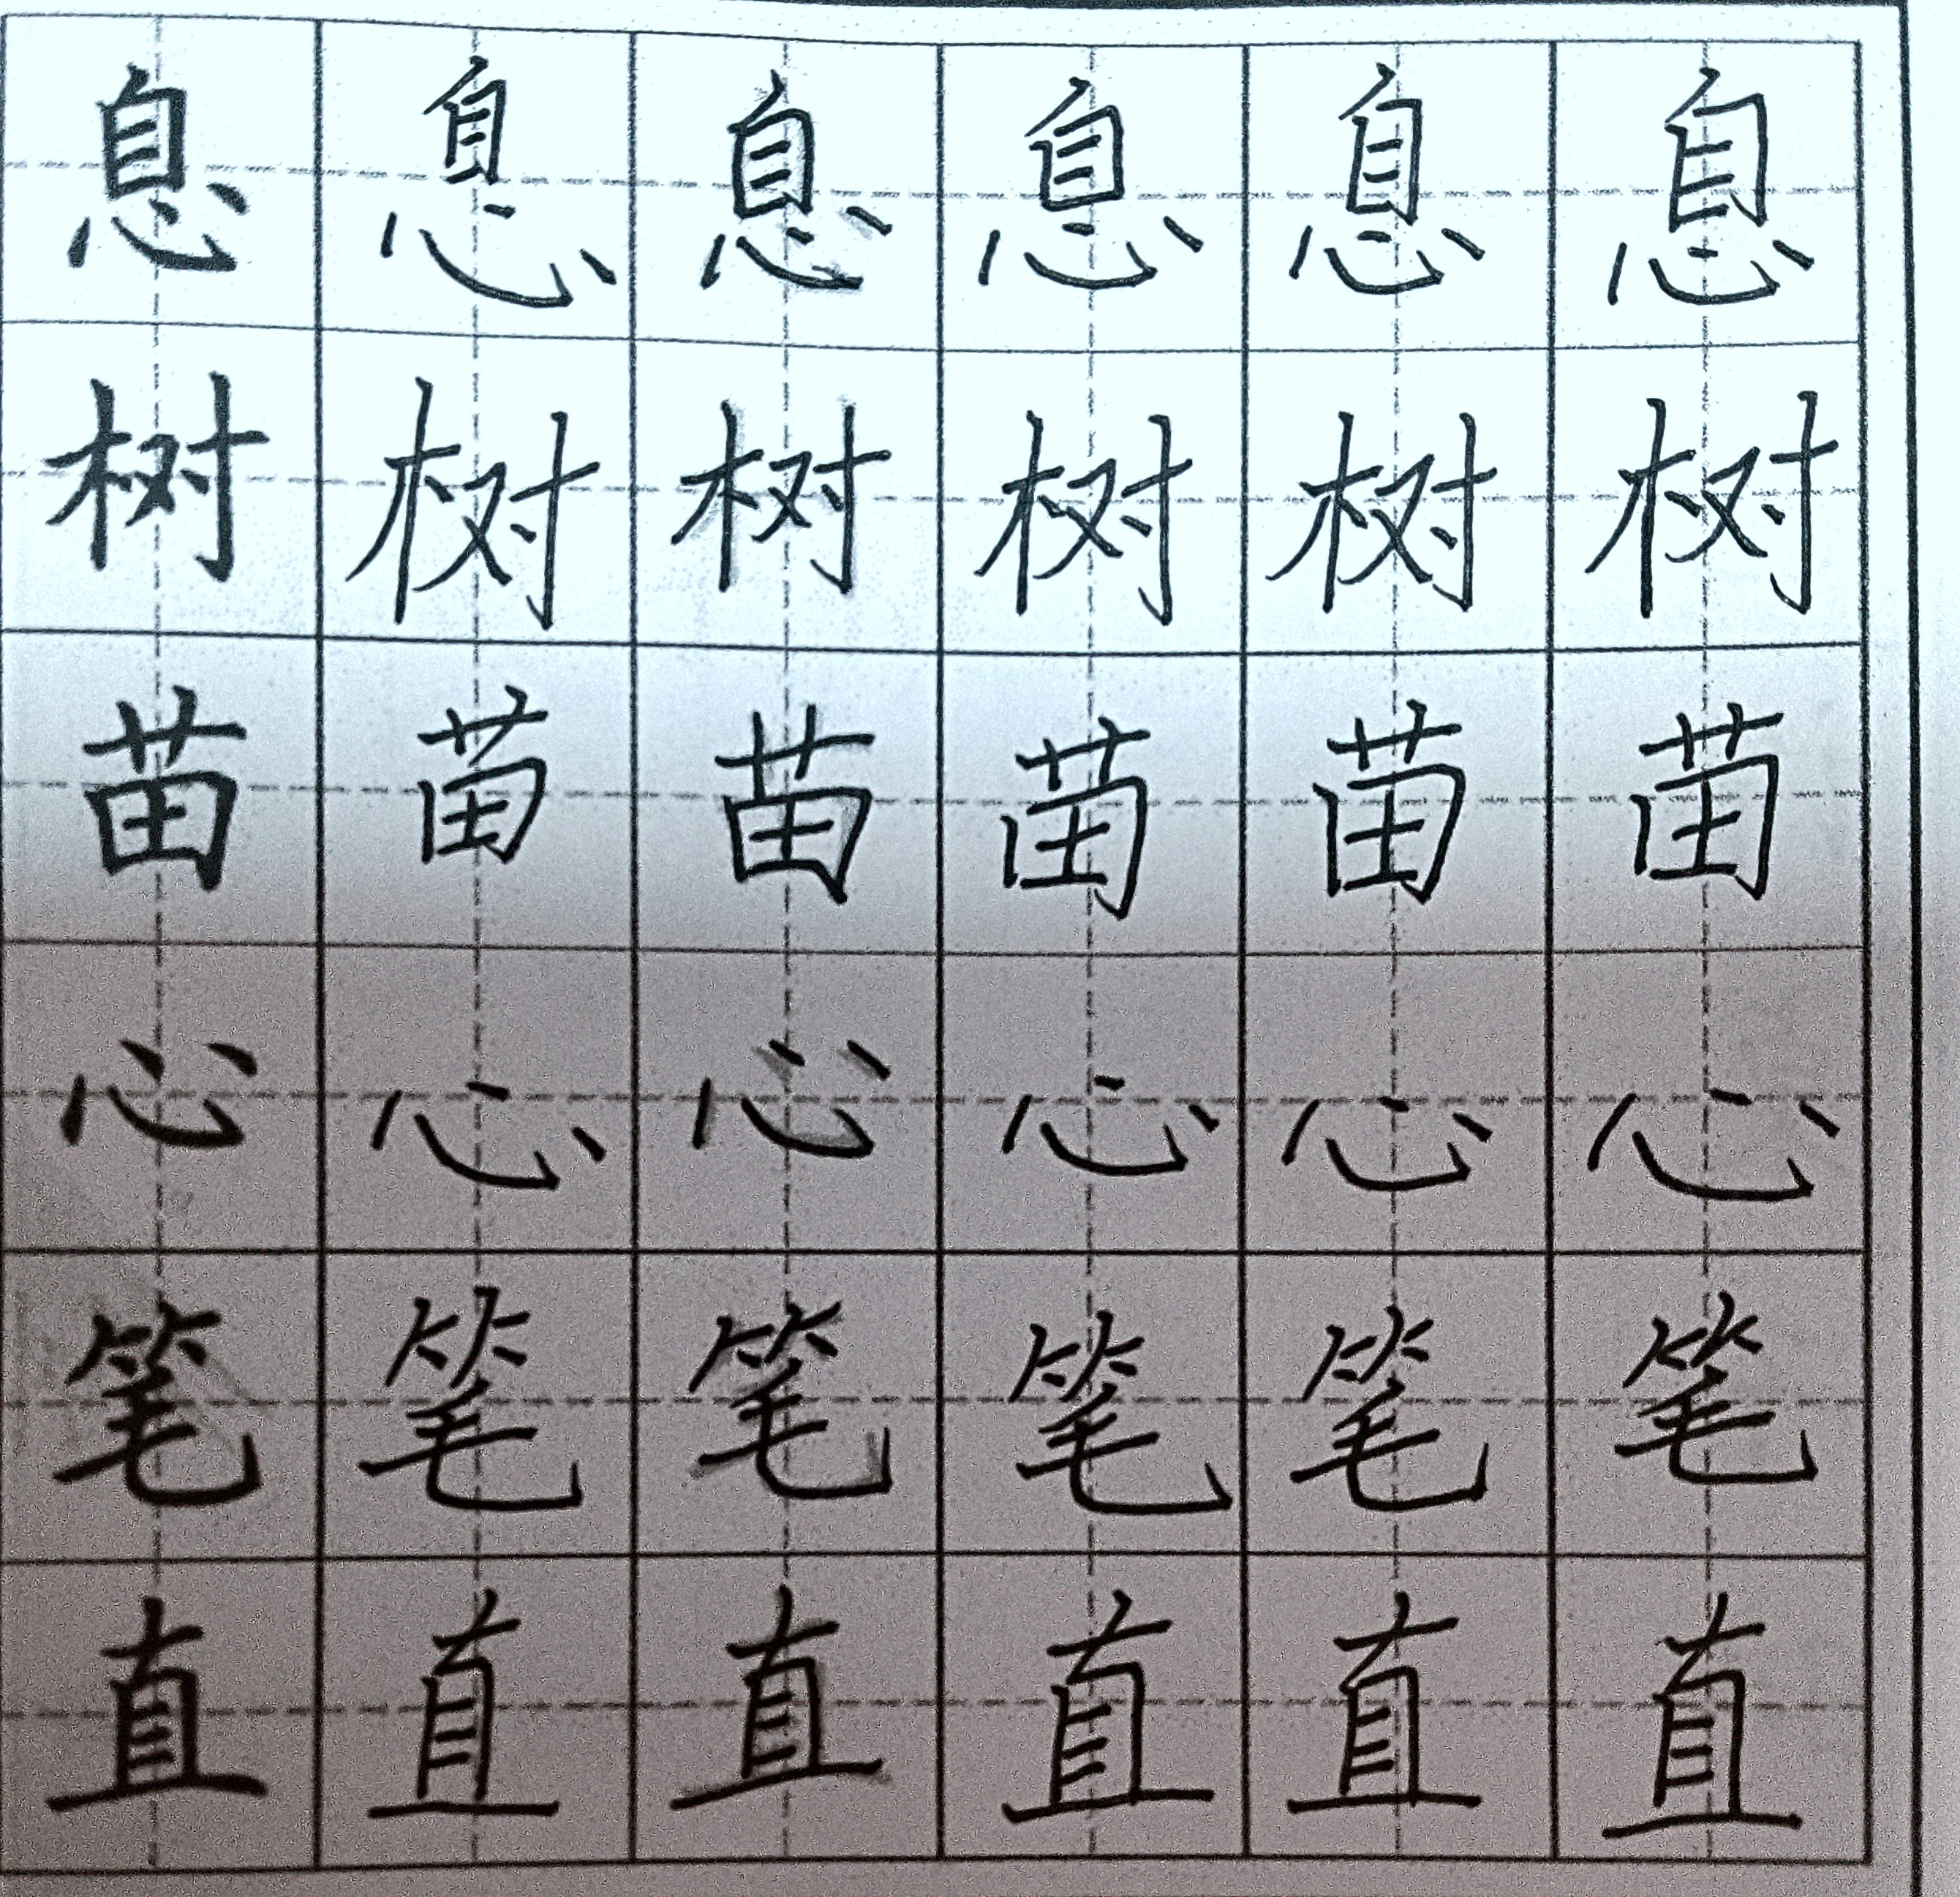 息息息息息息
树树树树树树
苗苗苗苗苗苗
心心心心心心
笔笔笔笔笔笔
直直直直直直